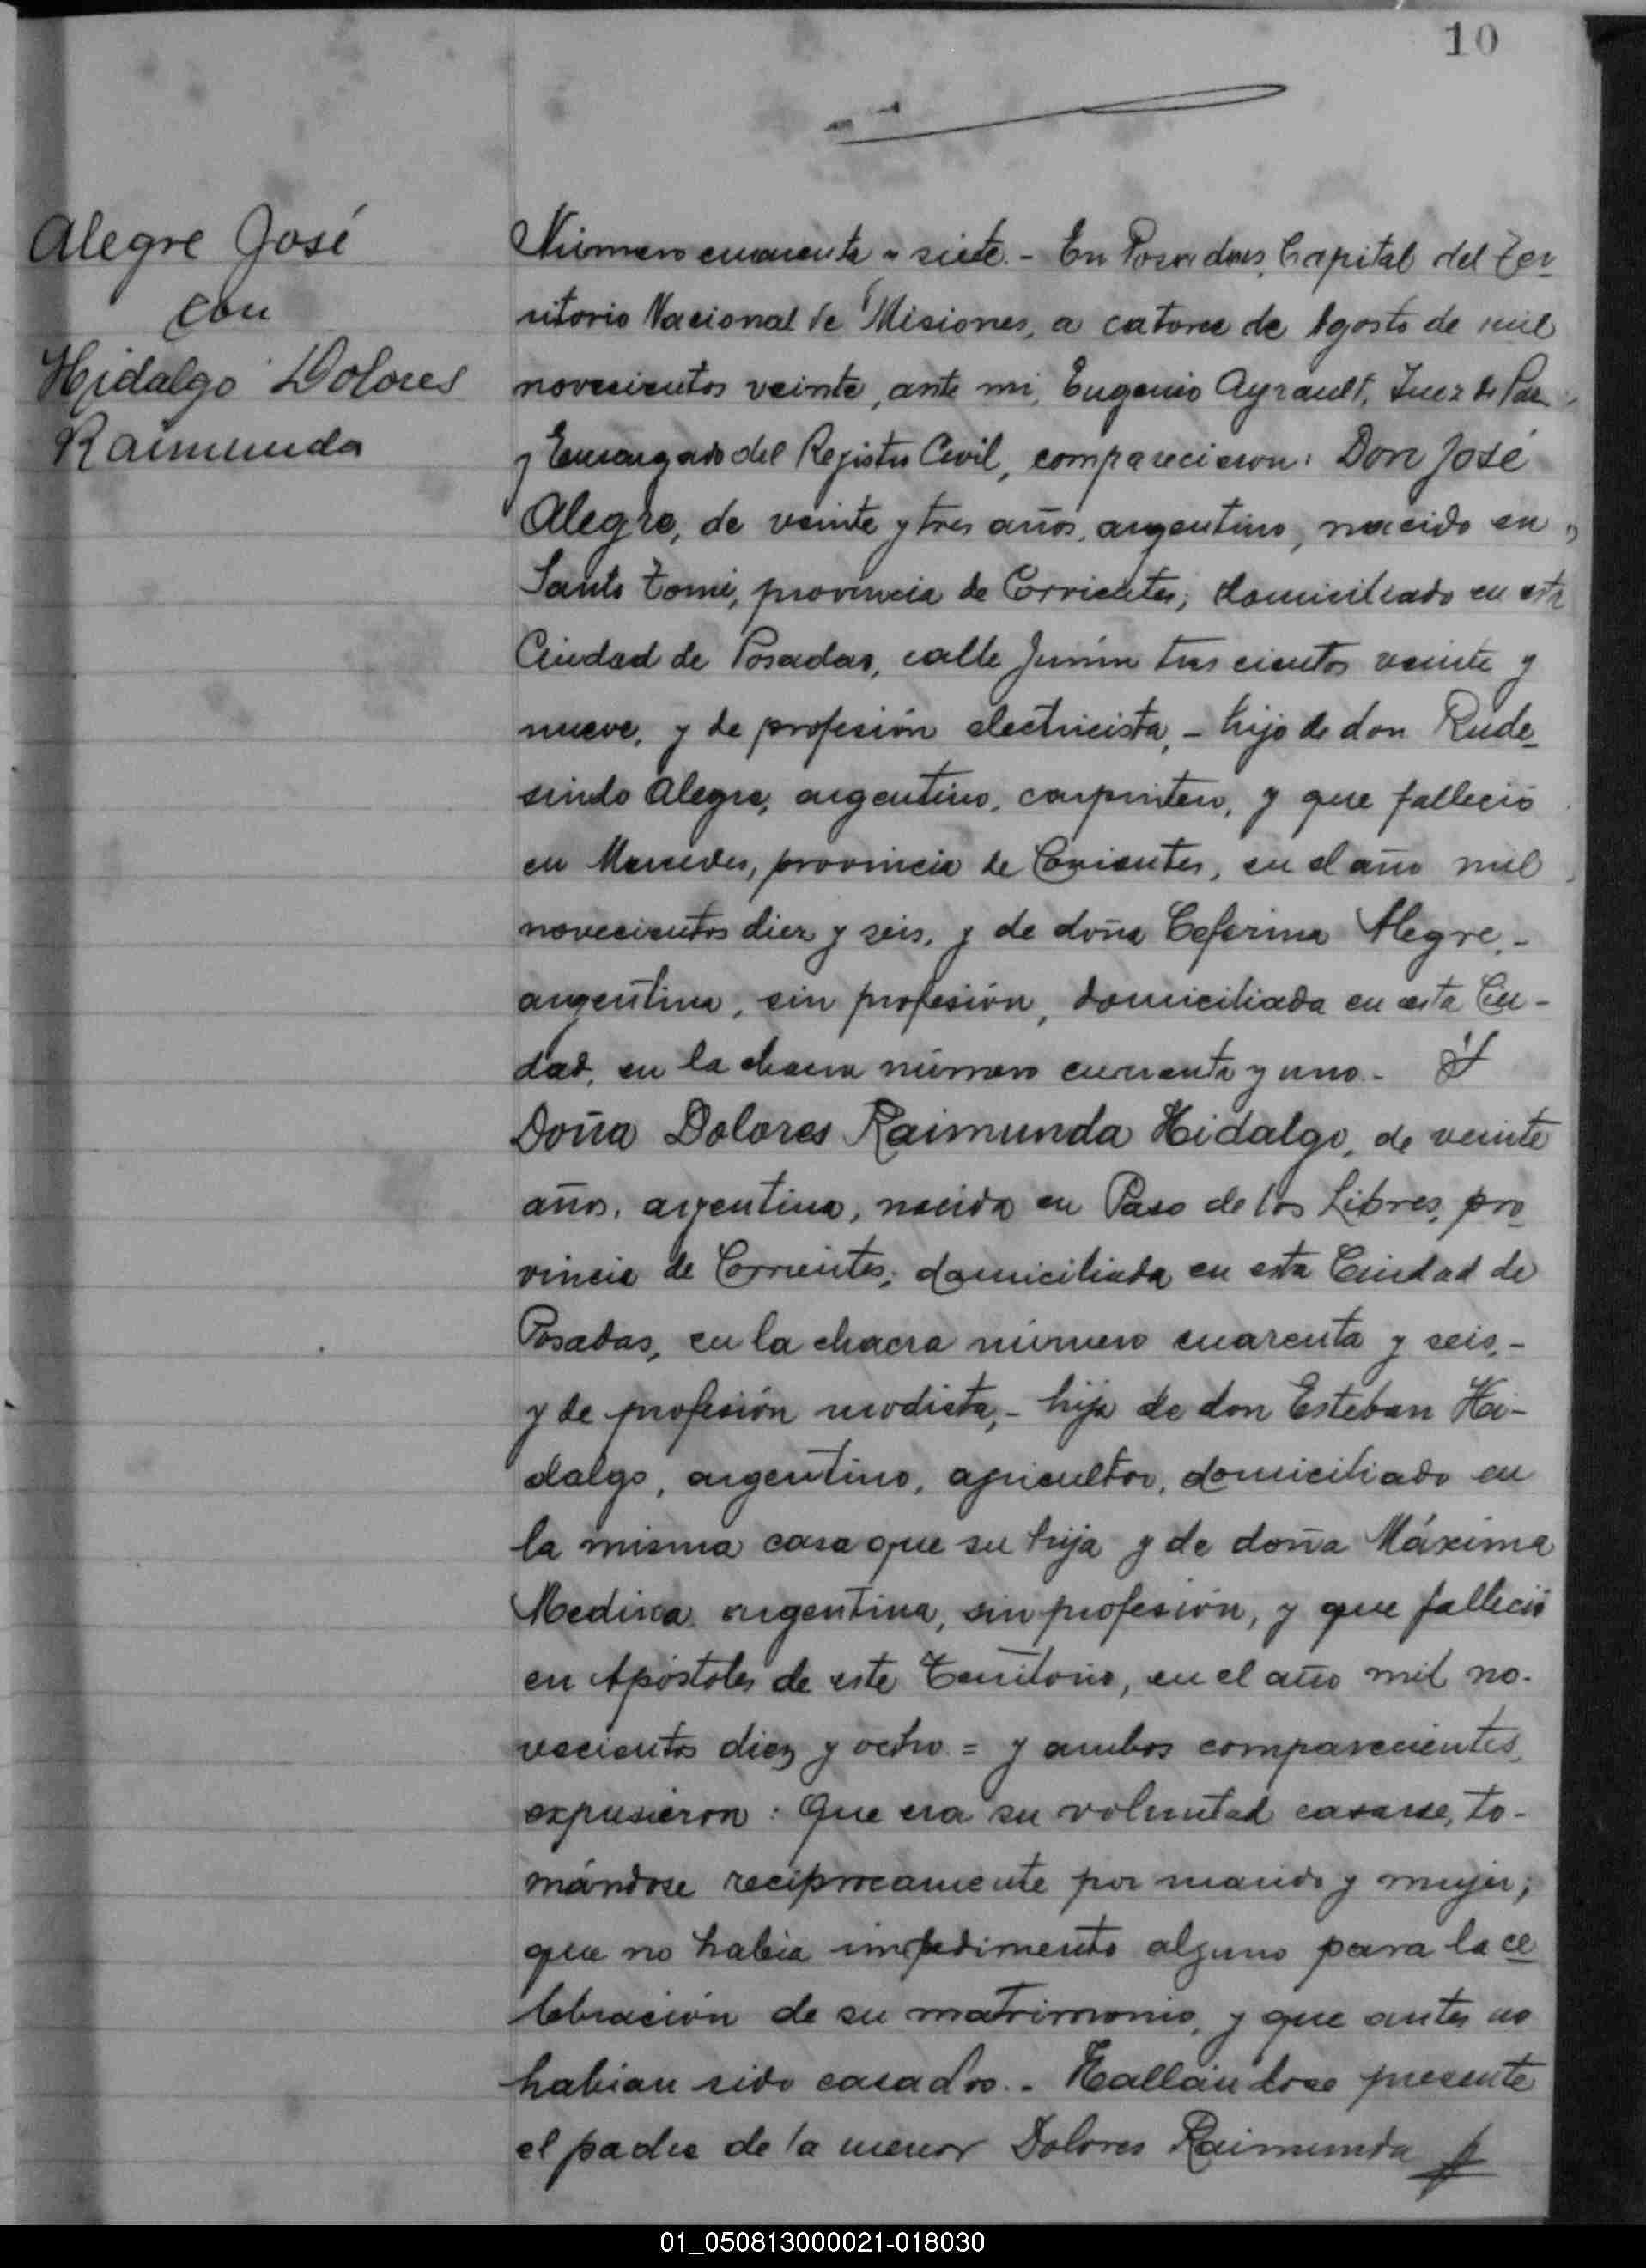 10
Alegre José
con
Hidalgo Dolores
Raimunda
Número cuarenta y siete.- En Posadas, Capital del Ter-
ritorio Nacional de Misiones, a catorce de Agosto de mil
novecientos veinte, ante mi, Eugenio Ayrault, Juez de Paz
y Encargado del Registro Civil, comparecieron: Don José
Alegre, de veinte y tres años, argentino, nacido en
Santo Tomé, provincia de Corrientes, domiciliado en esta
Ciudad de Posadas, calle Junín tres cientos veinte y
nueve, y de profesión electricista,- hijo de don Rude-
sindo Alegre, argentino, carpintero, y que falleció
en Mercedes, provincia de Corrientes, en el año mil
novecientos diez y seis, y de doña Ceferina Alegre,-
argentina, sin profesión, domiciliada en esta Ciu-
dad, en la chacra número cuarenta y uno.- Y
Doña Dolores Raimunda Hidalgo, de veinte
años, argentina, nacida en Paso de los Libres, pro-
vincia de Corrientes; domiciliada en esta Ciudad de
Posadas, en la chacra número cuarenta y seis,-
y de profesión modista,- hija de don Esteban Hi-
dalgo, argentino, agricultor, domiciliado en
la misma casa que su hija y de doña Máxima
Medina, argentina, sin profesión, y que falleció
en Apóstoles de este Territorio, en el año mil no-
vecientos diez y ocho = y ambos comparecientes,
expusieron: Que era su voluntad casarse, to-
mándose recíprocamente por marido y mujer;
que no había impedimento alguno para la ce-
lebración de su matrimonio, y que antes no
habían sido casados.- Hallándose presente
el padre de la menor Dolores Raimunda
01_050813000021-018030